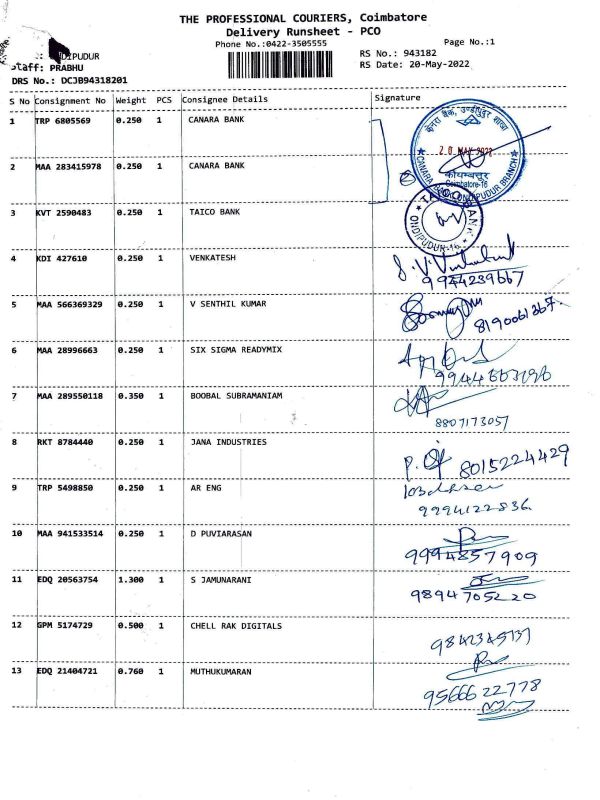 THE PROFESSIONAL COURIERS, Coimbatore
Delivery Runsheet - PCO
Phone No.:0422-3505555 Page No.:1
RS No.: 943182
Staff: PRABHU RS Date: 20-May-2022
DRS No.: DCJB94318201
S No Consignment No Weight PCS Consignee Details Signature
1 TRP 6805569 0.250 1 CANARA BANK
केनरा बैंक,
20 MAY 2022
2 MAA 283415978 0.250 1 CANARA BANK
Coimbatore-16
CANARA BANK ONDIPUDUR BRANCH
3 KVT 2590483 0.250 1 TAICO BANK
TAICO BANK
ONDIPUDUR-16
4 KDI 427610 0.250 1 VENKATESH
9944239667
5 MAA 566369329 0.250 1 V SENTHIL KUMAR
8190061367.
6 MAA 28996663 0.250 1 SIX SIGMA READYMIX
7 MAA 289550118 0.350 1 BOOBAL SUBRAMANIAM
8807173057
8 RKT 8784440 0.250 1 JANA INDUSTRIES
8015224429
9 TRP 5498850 0.250 1 AR ENG
9994122836.
10 MAA 941533514 0.250 1 D PUVIARASAN
9994857909
11 EDQ 20563754 1.300 1 S JAMUNARANI
9894705220
12 GPM 5174729 0.500 1 CHELL RAK DIGITALS
13 EDQ 21404721 0.760 1 MUTHUKUMARAN
9566622778